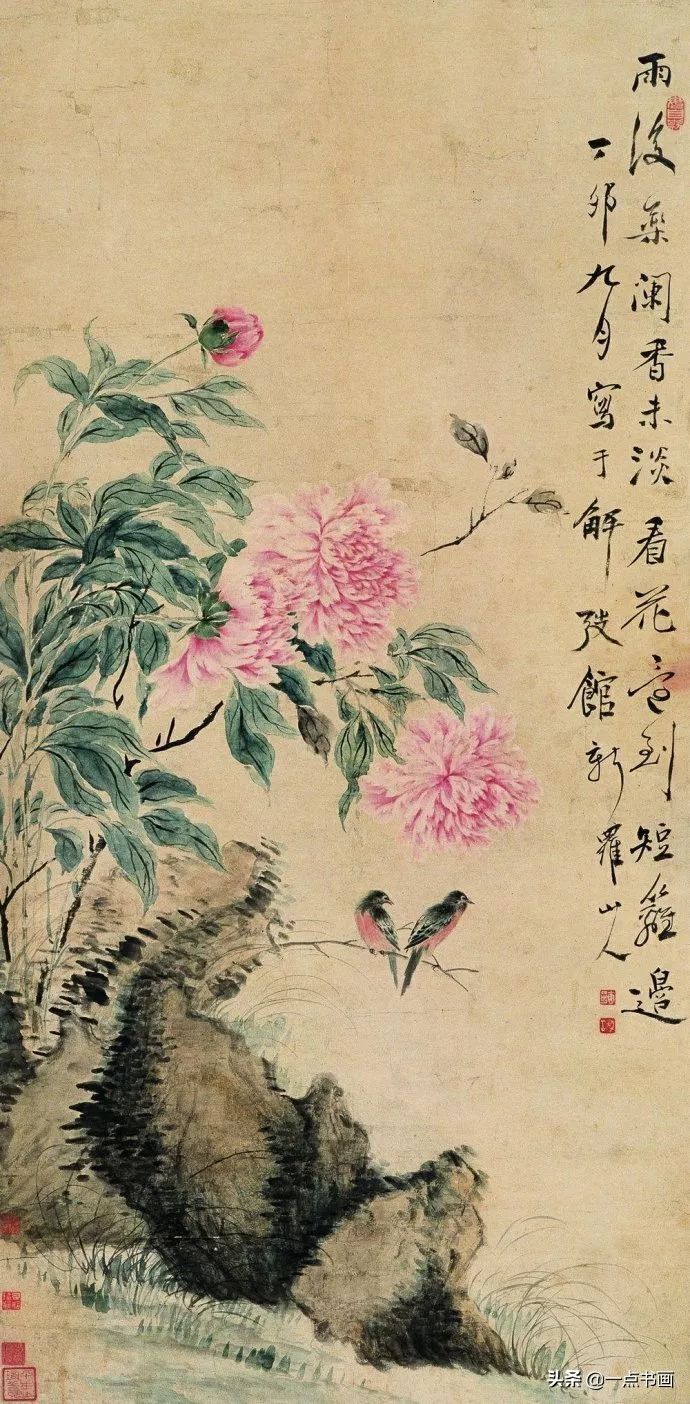 雨後藥闌香未淡看花意到短籬邊
丁卯九月寫于解弢館新羅山人
头条@一点书画